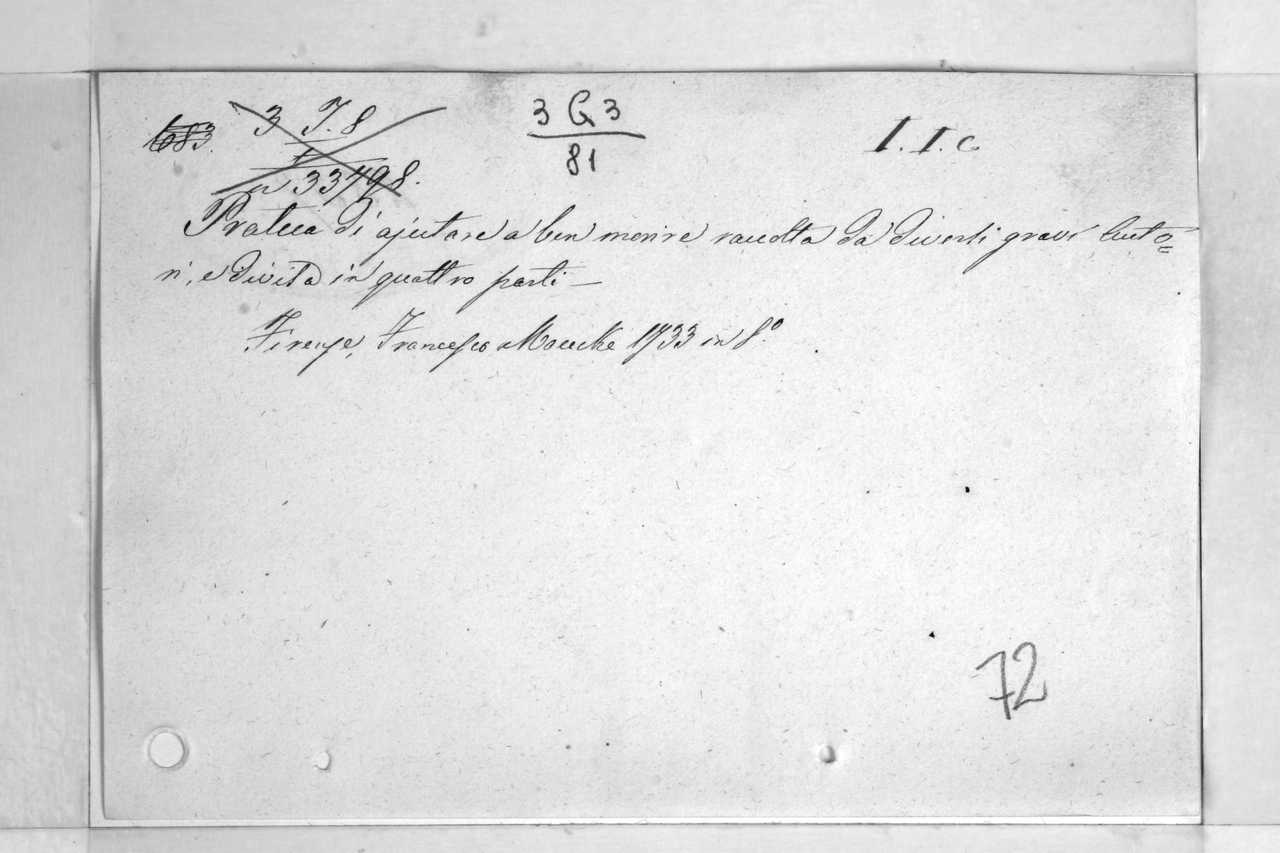 1683. 3 J. 8
n 33798.
3 G 3
81
I. I. c
Pratica di ajutare a ben morire raccolta da diversi gravi Auto=
ri, e divisa in quattro parti —
Firenze, Francesco Moucke 1733 in 8º
72